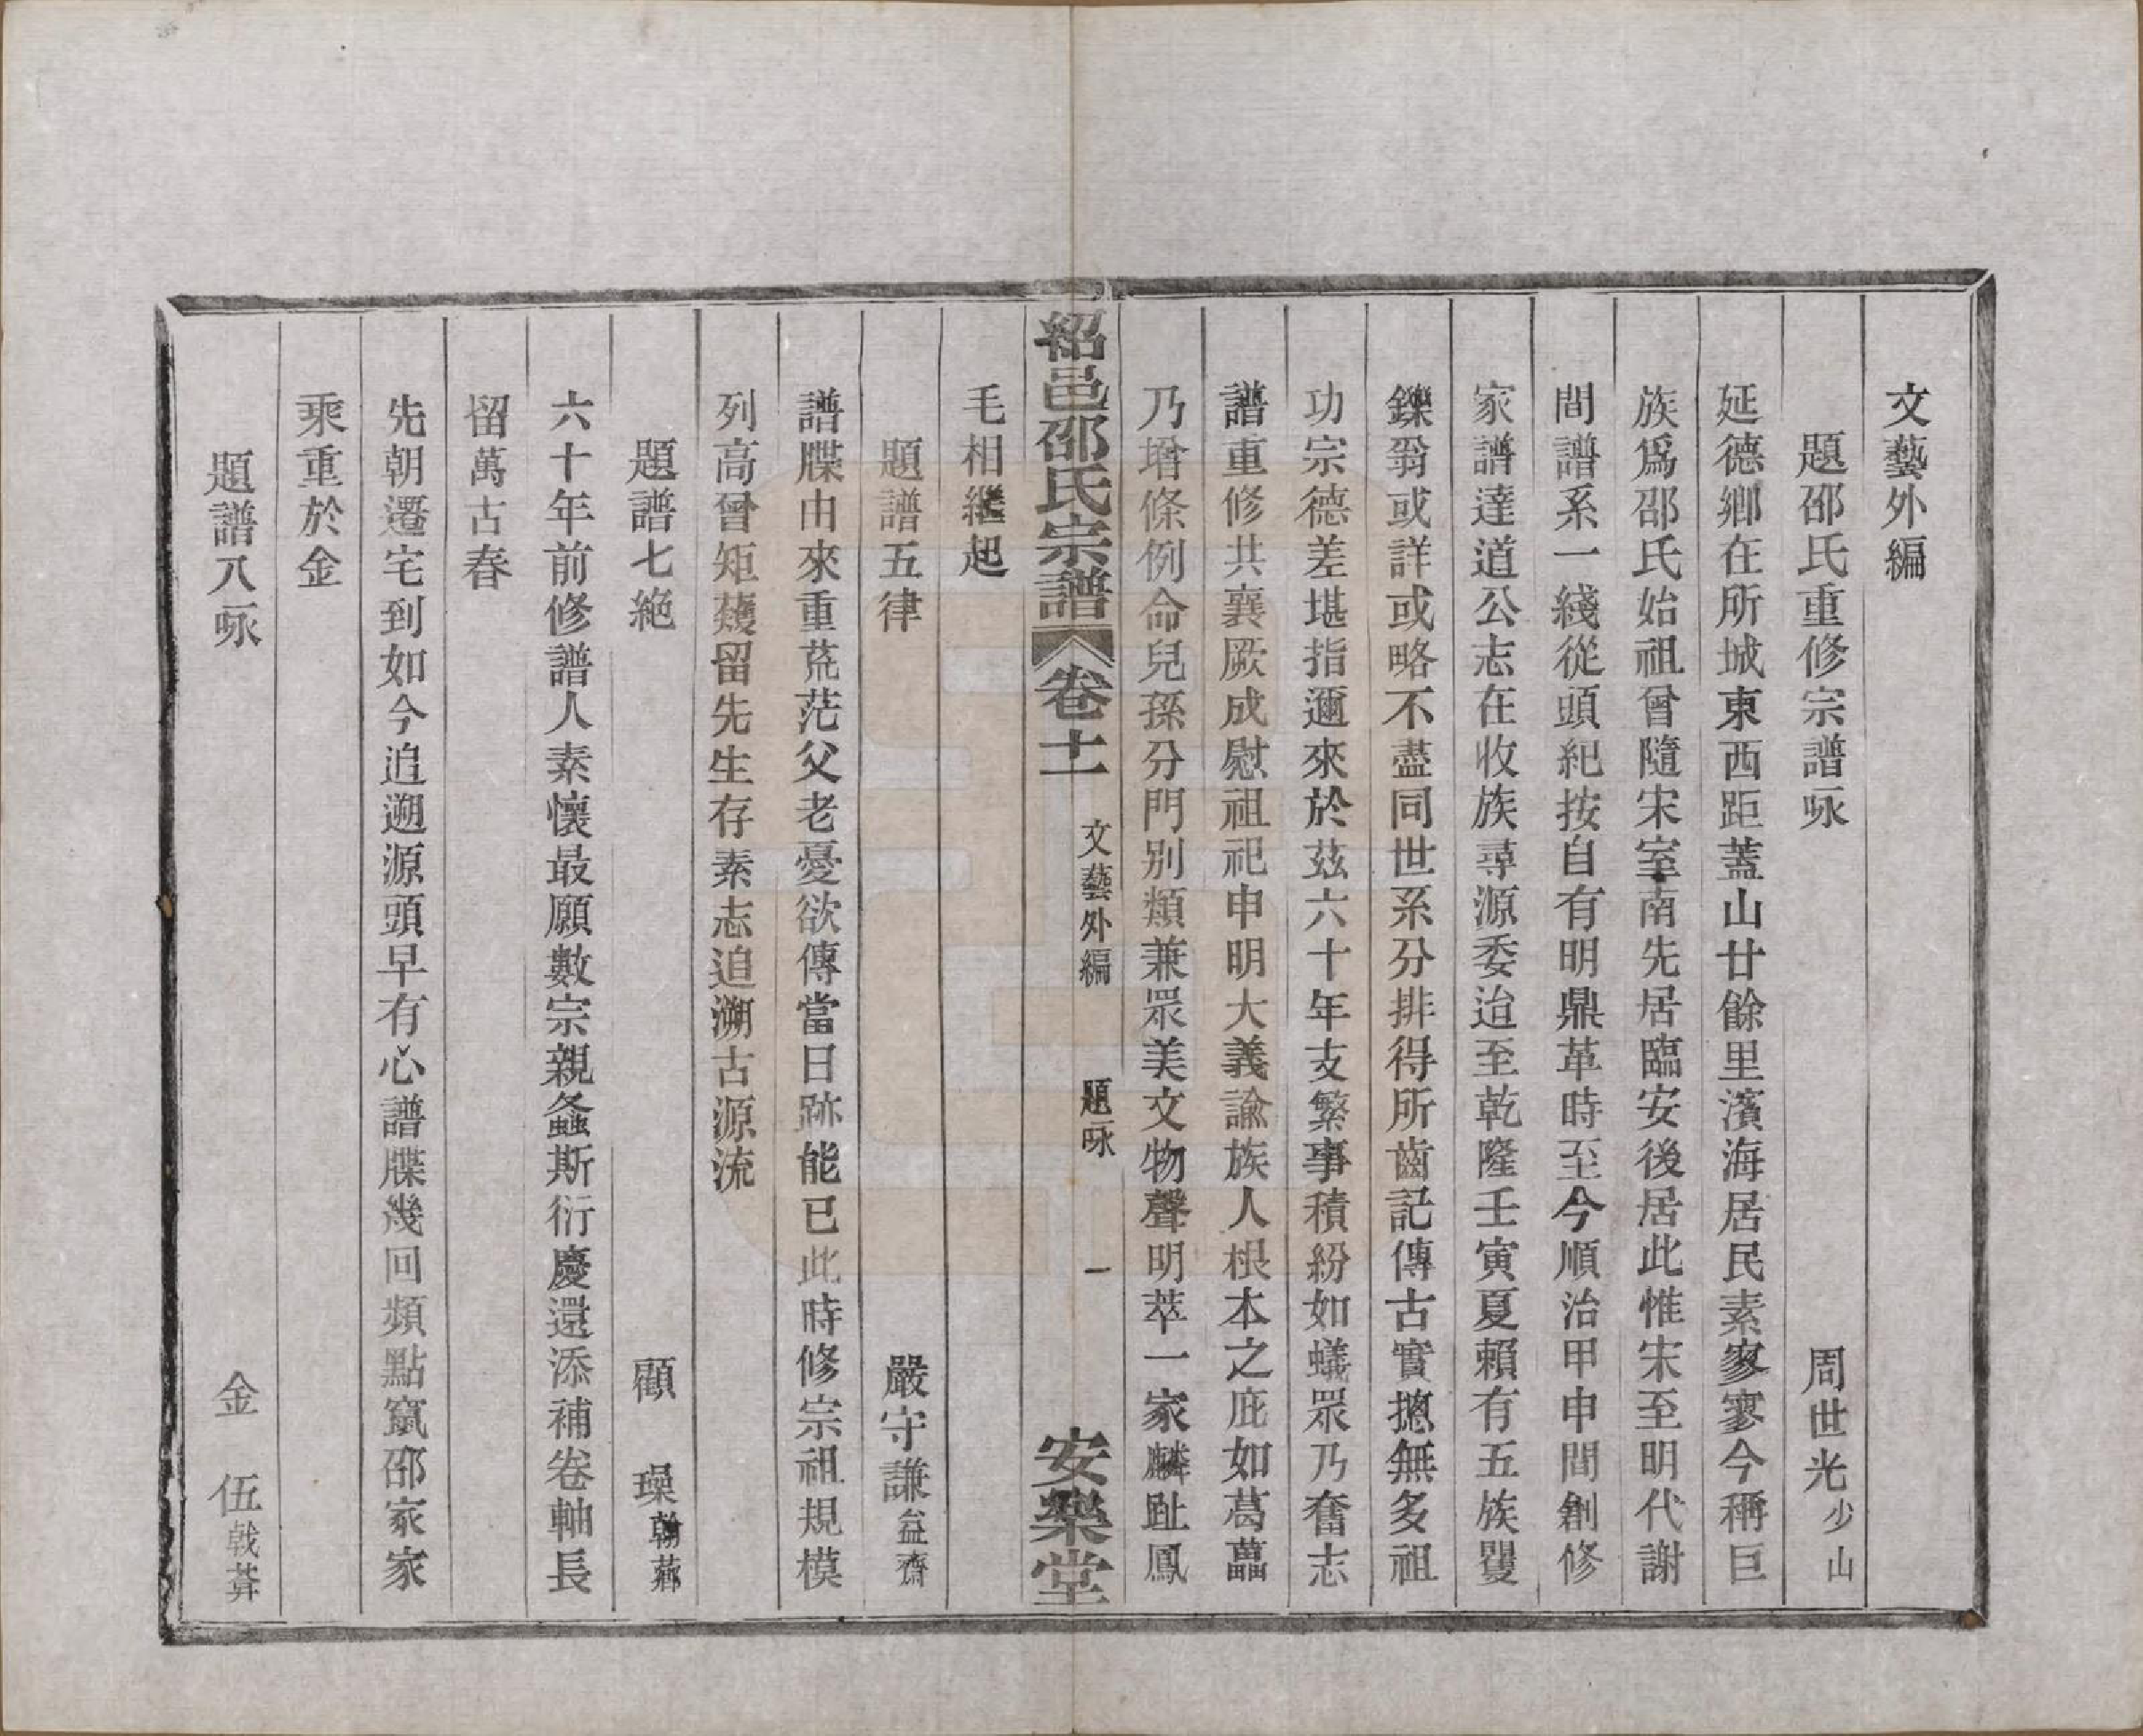 文藝外編
題邵氏重修宗譜咏　周世光少山
延德鄉在所城東西距蓋山廿餘里濱海居民素寥寥今稱巨
族爲邵氏始祖曾隨宋室南先居臨安後居此惟宋至明代謝
間譜系一綫從頭紀按自有明鼎革時至今順治甲申間創修
家譜達道公志在收族尋源委迨至乾隆壬寅夏賴有五族矍
鑠翁或詳或略不盡同世系分排得所齒記傳古實摠無多祖
功宗德差堪指邇來於茲六十年支繁事積紛如蟻眾乃奮志
譜重修共襄厥成慰祖祀申明大義諭族人根本之庇如葛藟
乃增條例命兒孫分門別類兼眾美文物聲明萃一家麟趾鳳
紹邑邵氏宗譜　卷十一　文藝外編　題咏　一　安樂堂
毛相繼起
題譜五律　嚴守謙益齋
譜牒由來重茫茫父老憂欲傳當日跡能已此時修宗祖規模
列高曾矩蒦留先生存素志追溯古源流
題譜七絶　顧　璪翰薌
六十年前修譜人素懷最願數宗親螽斯衍慶還添補卷軸長
留萬古春
先朝遷宅到如今追遡源頭早有心譜牒幾回頻點竄邵家家
乘重於金
題譜八咏　金　伍戟莽